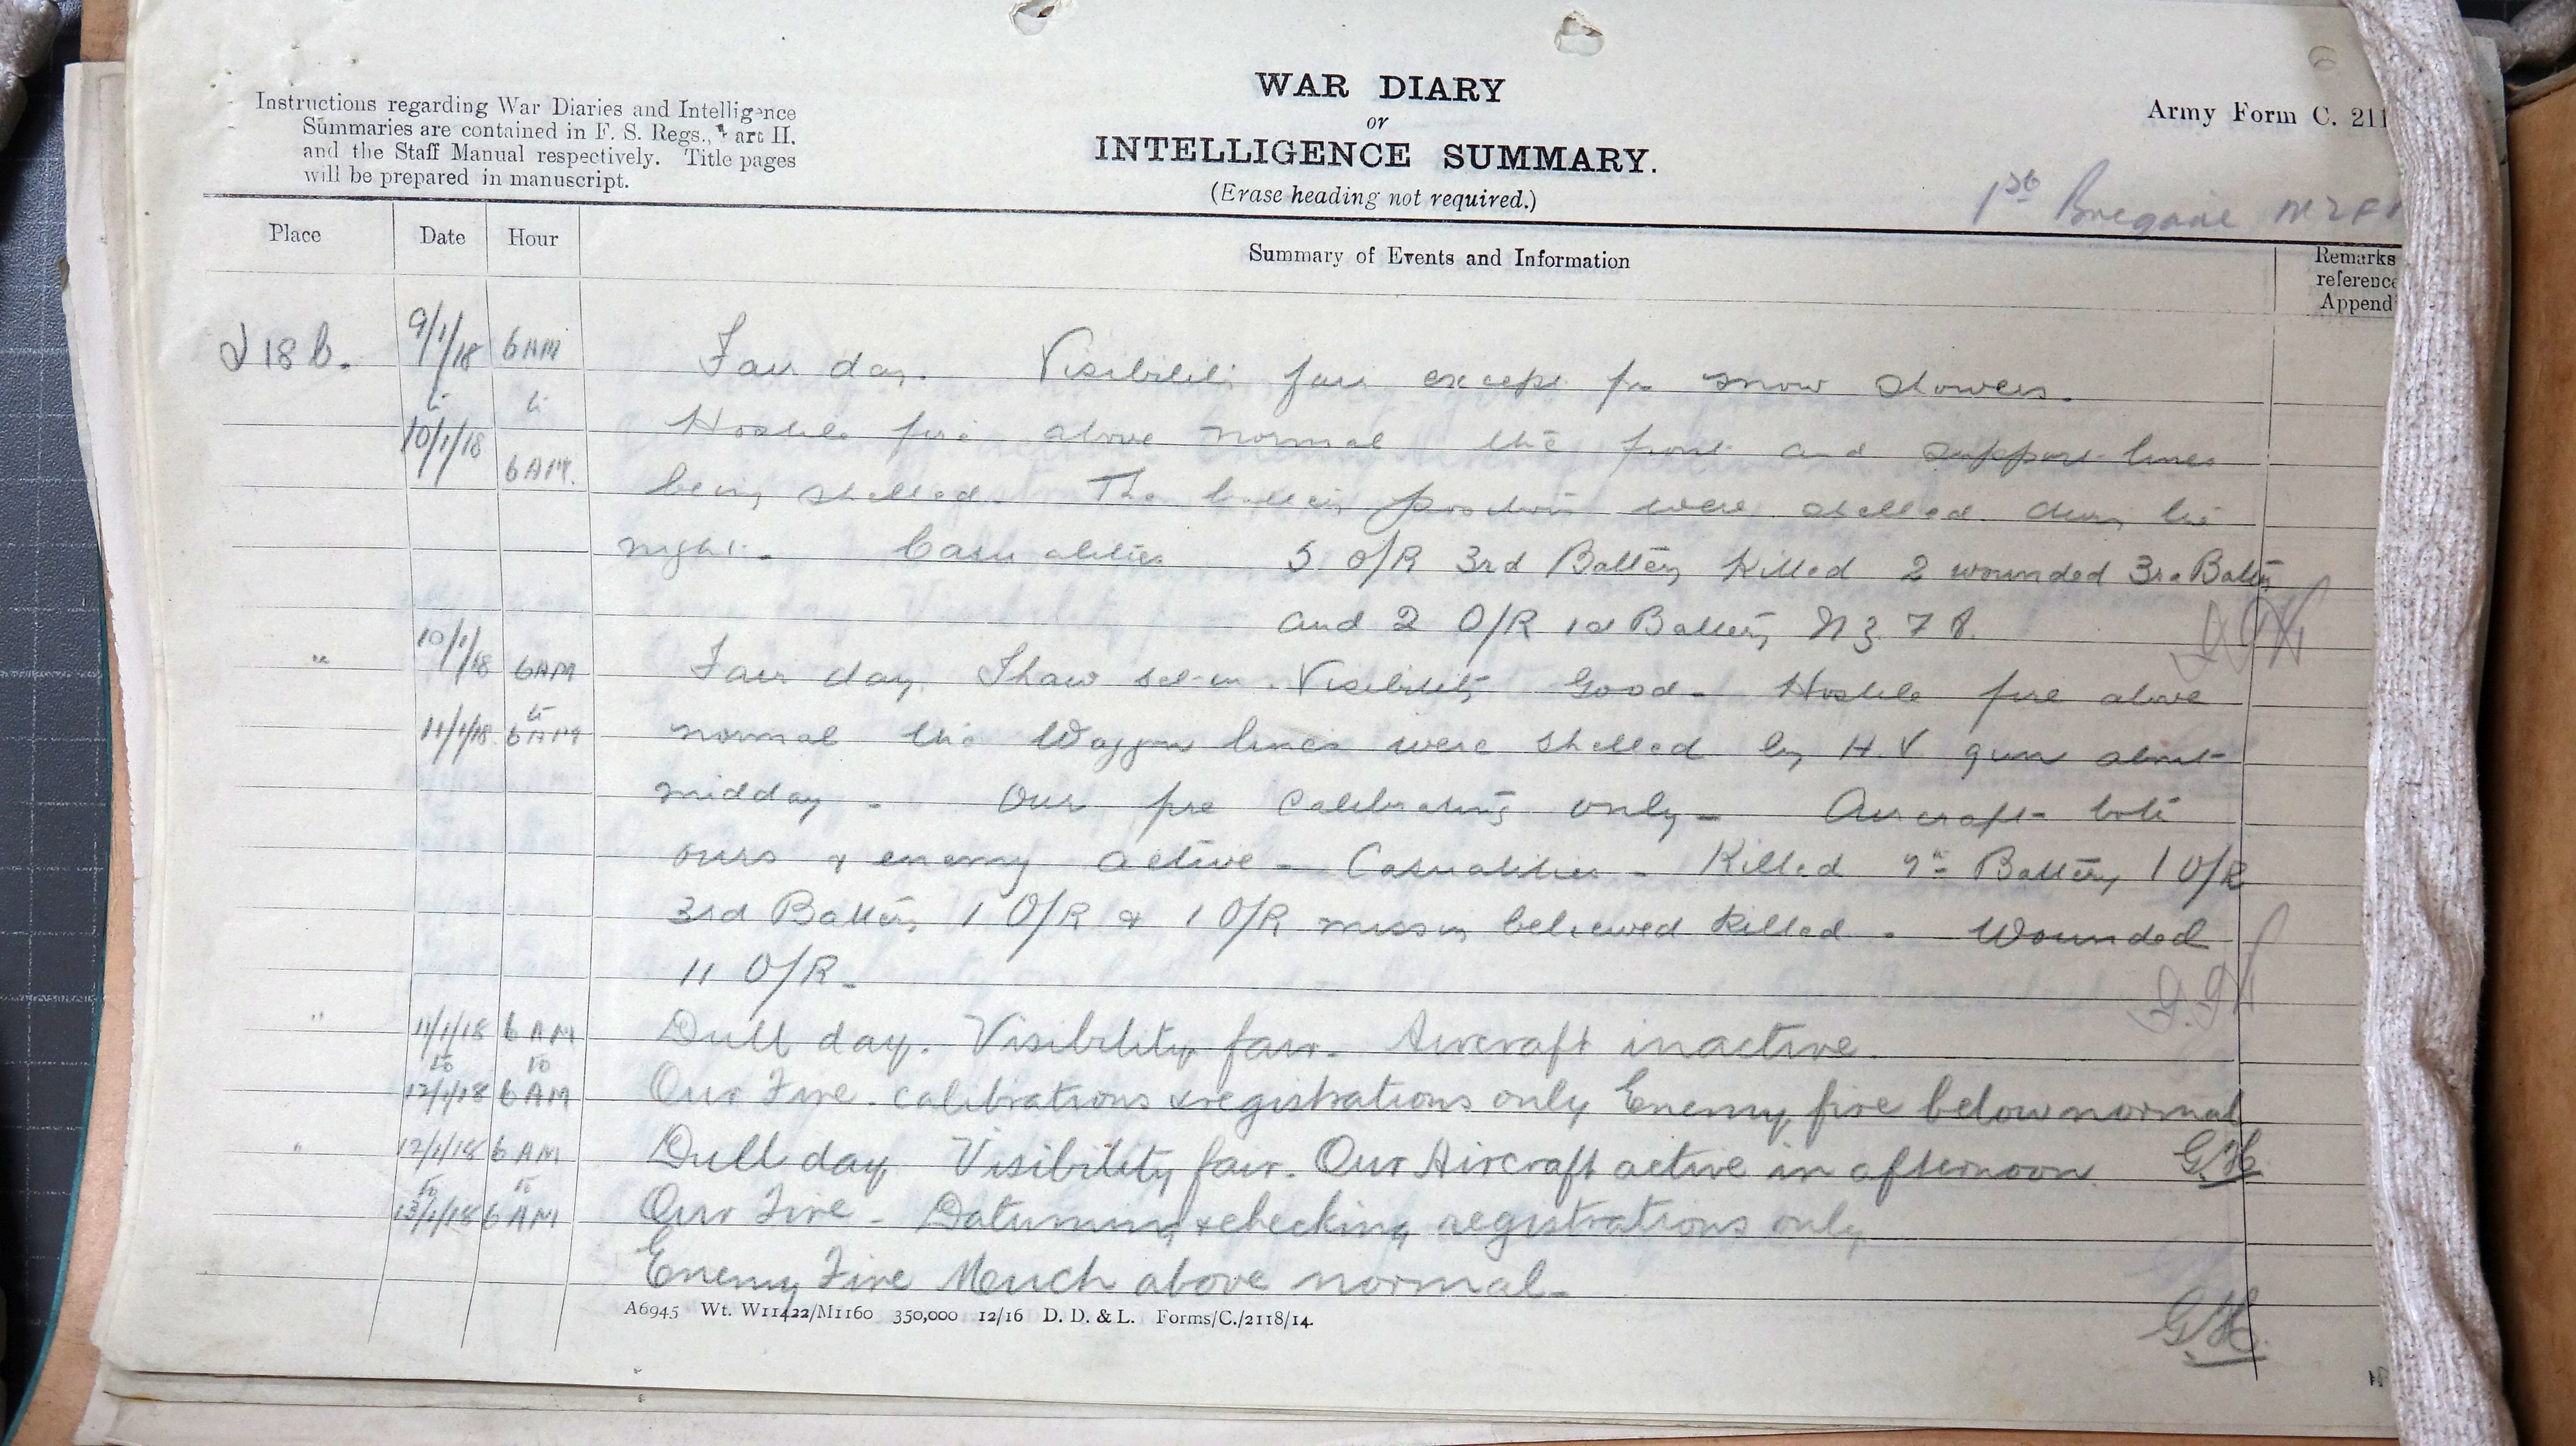 WAR DIARY
or
INTELLIGENCE SUMMARY.
(Erase heading not required.)
Instructions regarding War Diaries and Intelligence
Summaries are contained in F. S. Regs., Part II.
and the Staff Manual respectively. Title pages
will be prepared in manuscript.
Army Form C. 211
1st Brigade NZFA
Place Date Hour Summary of Events and Information Remarks
reference
Append
J 18 b. 9/1/18 6AM Fair day. Visibility fair except for snow showers.
to to
10/1/18 Hostile fire above normal the front and support lines
6AM. being shelled. The battery positions were shelled during the
night. Casualities 5 O/R 3rd Battery Killed 2 wounded 3rd Battery
and 2 O/R 1st Battery NZFA.
" 10/1/18 6AM Fair day Thaw set in. Visibility Good. Hostile fire above
to
11/1/18 6AM normal the Waggon lines were shelled by H.V gun about
midday. Our fire Calibrating only. Aircraft both
ours & enemy active. Casualities. Killed 7th Battery 1 O/R
3rd Battery 1 O/R & 1 O/R missing believed killed. Wounded
11 O/R.
" 11/1/18 6 AM Dull day. Visibility fair. Aircraft inactive.
to to
12/1/18 6 AM Our Fire. calibrations & registrations only Enemy fire below normal
" 12/1/18 6 AM Dull day Visibility fair. Our Aircraft active in afternoon. G.H.
to to
13/1/18 6 AM Our Fire - Datuming & checking registrations only
Enemy Fire Much above normal.
G.H.
A6945 Wt. W11422/M1160 350,000 12/16 D. D. & L. Forms/C./2118/14.